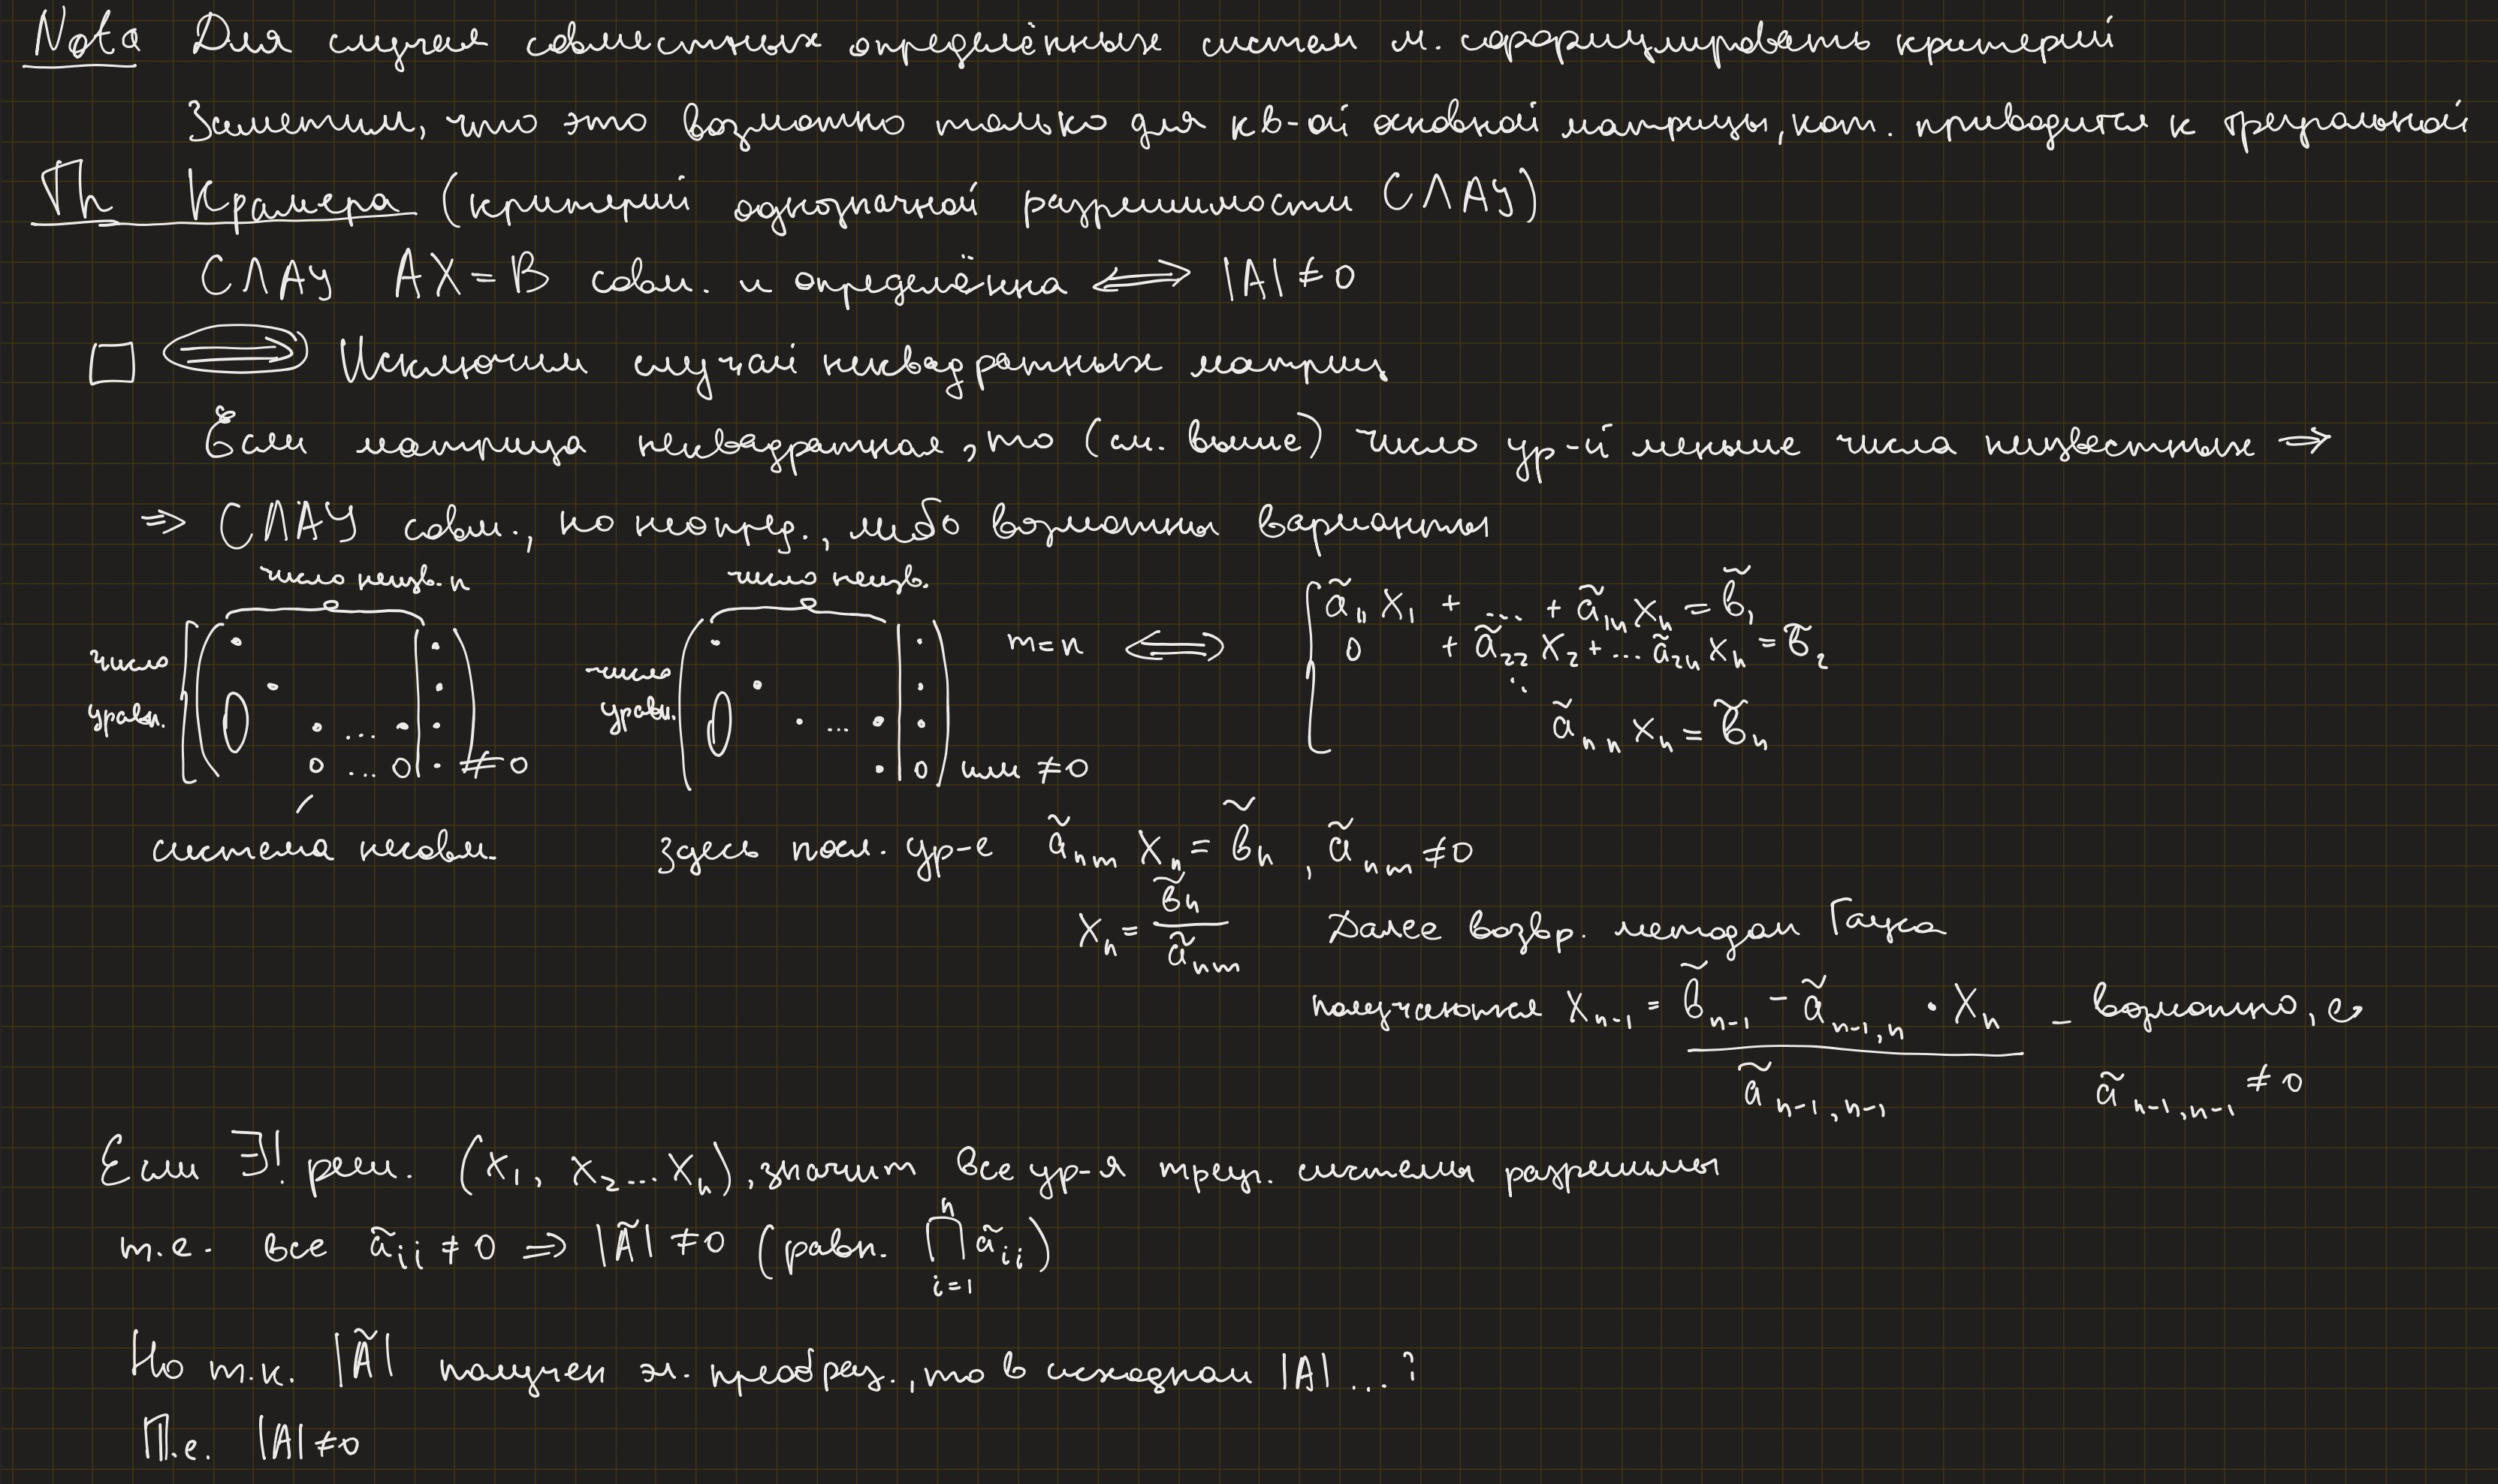 Nota Для случая совместных определённых систем м. сформулировать критерий
Заметим, что это возможно только для кв-ой основной матрицы, кот. приводится к треугольной
Th Крамера (критерий однозначной разрешимости СЛАУ)
СЛАУ AX = B совм. и определённа ⟺ |A| ≠ 0
□ ⟹ Исключим случай неквадратных матриц
Если матрица неквадратная, то (см. выше) число ур-й меньше числа неизвестных ⇒
⇒ СЛАУ совм., но неопред., либо возможны варианты
число неизв. n
число неизв.
число уравн. ( 0 ... | ) 0 ... 0 | · ≠ 0
число уравн. ( 0 ... | ) · | 0 или ≠ 0
m = n ⟺ { ã₁₁ x₁ + ... + ã₁ₙ xₙ = b̃₁
0 + ã₂₂ x₂ + ... ã₂ₙ xₙ = b̃₂
⋱
ãₙₙ xₙ = b̃ₙ
система несовм.
здесь посл. ур-е ãₙₘ xₙ = b̃ₙ, ãₙₘ ≠ 0
xₙ = b̃ₙ / ãₙₘ Далее возвр. методом Гауса
получаются xₙ₋₁ = (b̃ₙ₋₁ − ã_{n-1,n} · xₙ) / ã_{n-1,n-1} – возможно, если
ã_{n-1,n-1} ≠ 0
Если ∃! реш. (x₁, x₂ ... xₙ), значит все ур-я треуг. системы разрешимы
т.е. все ãᵢᵢ ≠ 0 ⇒ |Ã| ≠ 0 (равн. ∏_{i=1}^{n} ãᵢᵢ)
Но т.к. |Ã| получен эл. преобраз., то в исходном |A| ...
Т.е. |A| ≠ 0